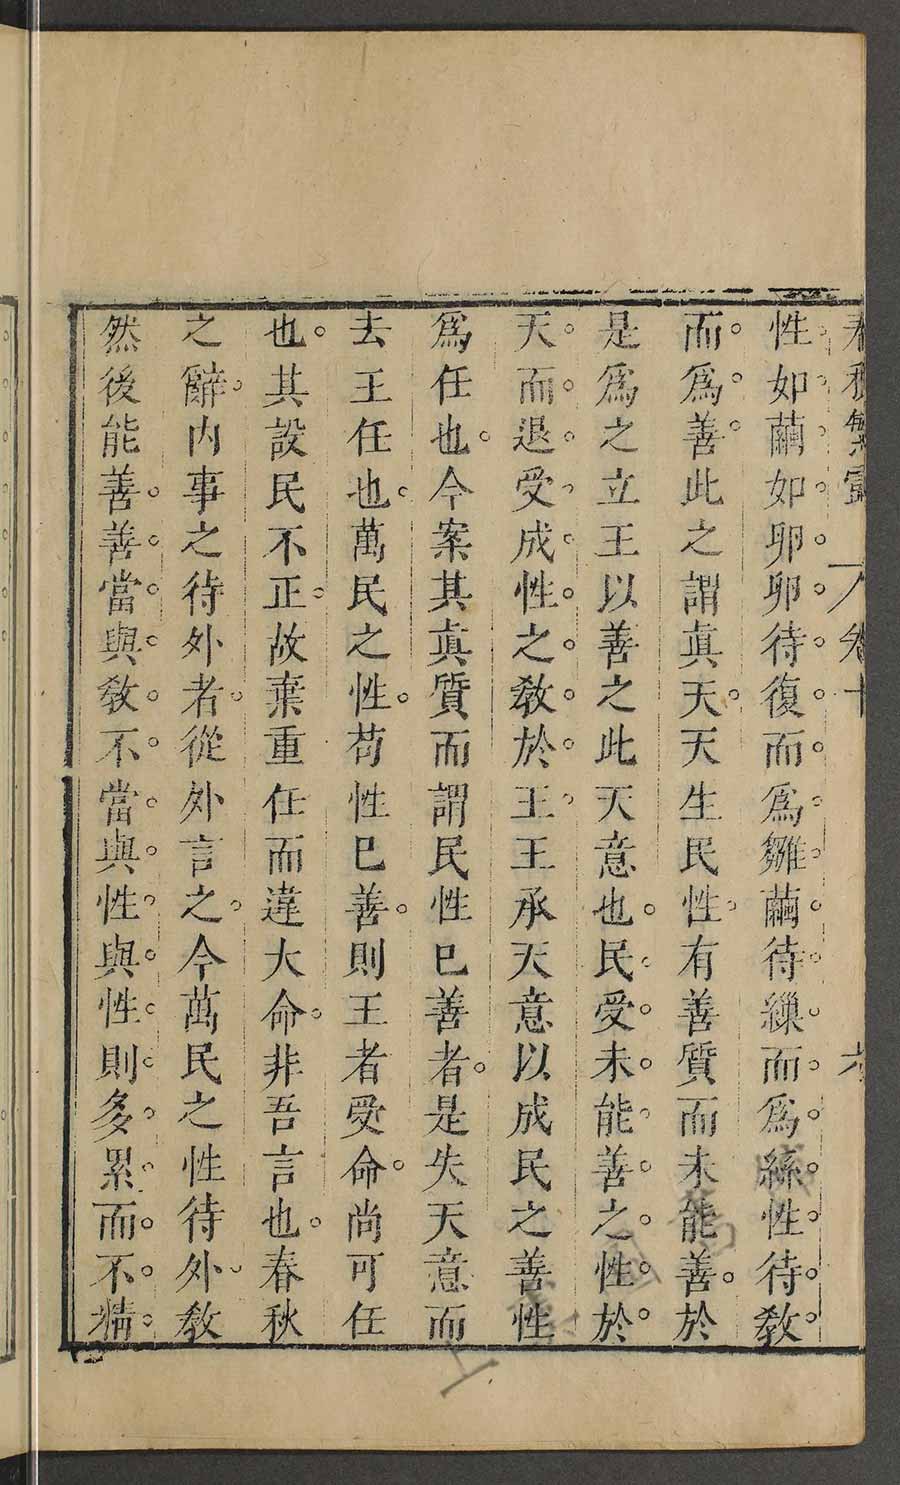 春秋繁露 卷十 六
性如繭如卵卵待復而爲雛繭待繅而爲絲性待敎
而爲善此之謂眞天天生民性有善質而未能善於
是爲之立王以善之此天意也民受未能善之性於
天而退受成性之敎於王王承天意以成民之善性
爲任也今案其眞質而謂民性已善者是失天意而
去王任也萬民之性苟性已善則王者受命尚可任
也其設民不正故棄重任而違大命非吾言也春秋
之辭內事之待外者從外言之今萬民之性待外敎
然後能善善當與敎不當與性與性則多累而不精